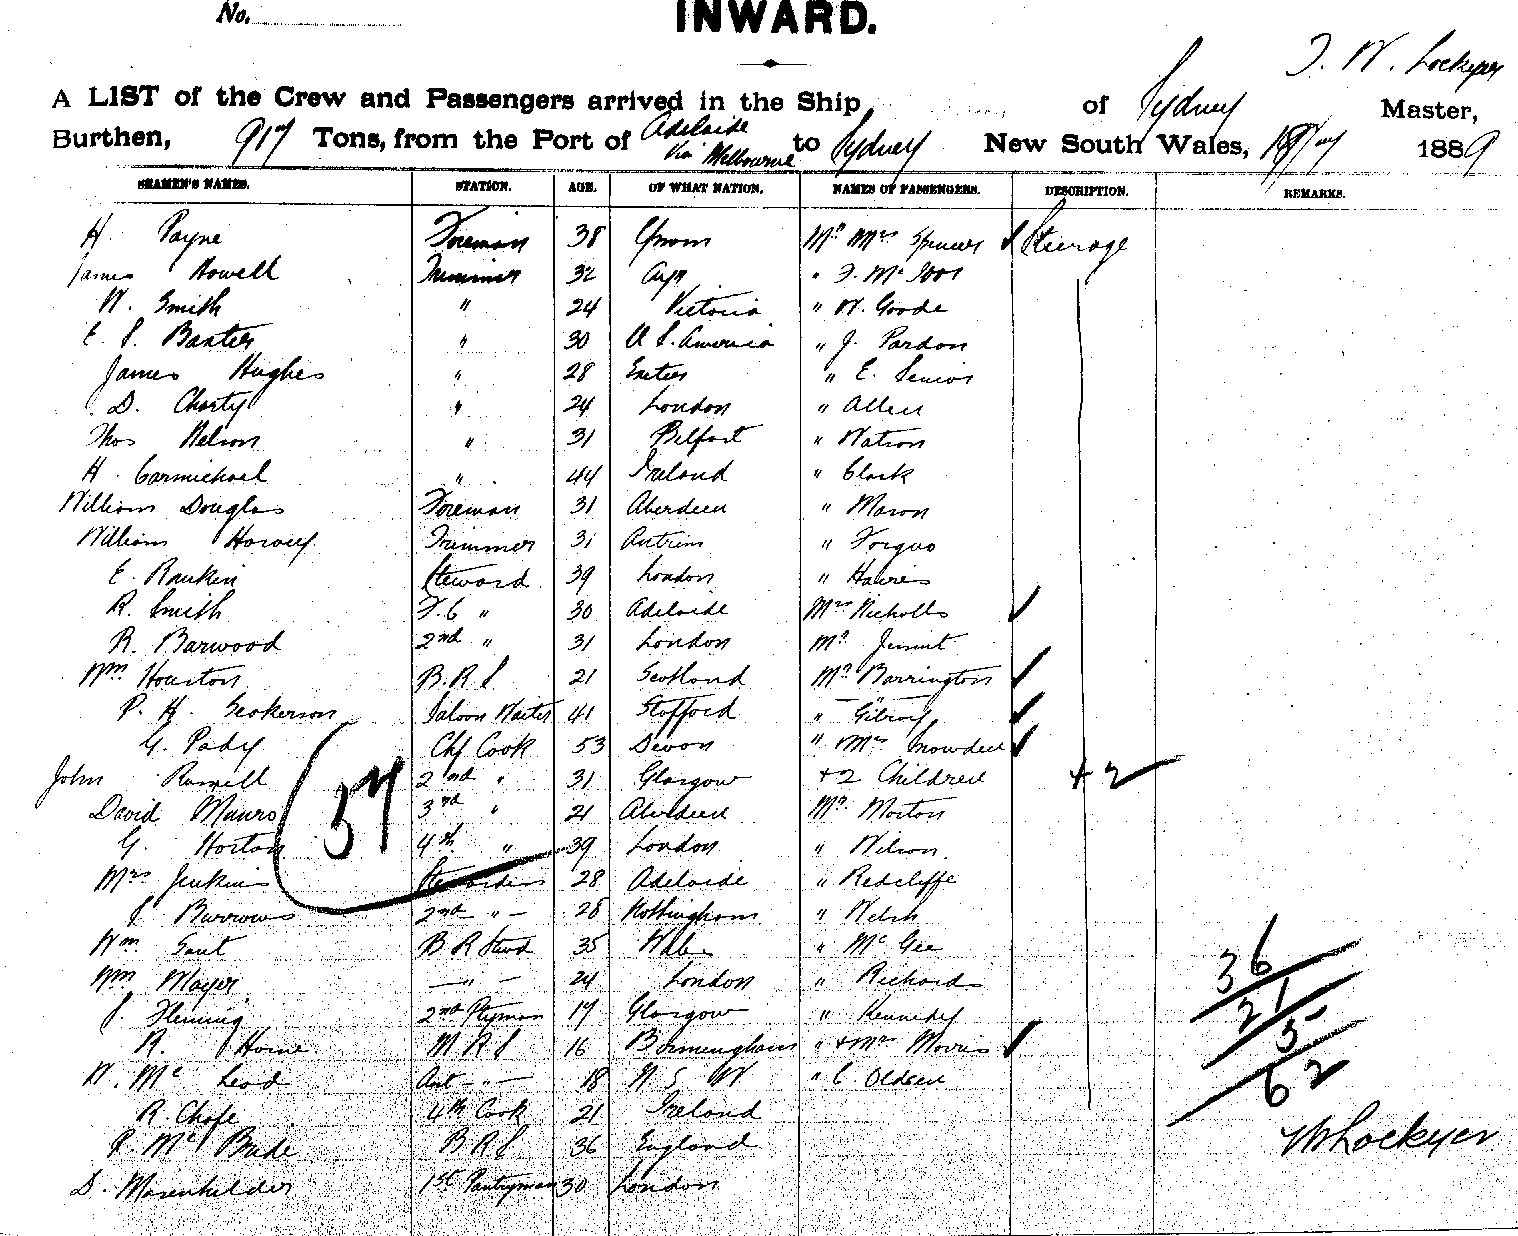 No.
INWARD.
T. W. Lockyer
A LIST of the Crew and Passengers arrived in the Ship of Sydney Master,
Burthen, 917 Tons, from the Port of Adelaide via Melbourne to Sydney New South Wales, 1889
SEAMEN'S NAMES. STATION. AGE. OF WHAT NATION. NAMES OF PASSENGERS. DESCRIPTION. REMARKS.
H. Payne Foreman 38 Mr Mrs Spencer Steerage
James Howell Trimmer 32 " F.
W. Smith " 24 Victoria " W. Goode
E. S. Baxter " 30 U.S. America " J. Pardon
James Hughes " 28 Exeter " E. Senior
D. Charty " 24 London " Allen
Thos Nelson " 31 Belfast " Watson
H. Carmichael " 44 Ireland " Clark
William Douglas Foreman 31 Aberdeen " Mason
William Harvey Trimmer 31 Antrim " Forgus
E. Rankin Steward 39 London " Harris
R. Smith F.C " 30 Adelaide Mrs Nicholls
R. Barwood 2nd " 31 London Mr
Wm Houston B.R.S 21 Scotland Mr Barrington
P. H. Seokerson Saloon Waiter 41 Stafford " Gilroy
G. Pady Chf Cook 53 Devon " + Mrs Snowden
John Russell 2nd " 31 Glasgow + 2 Children + 2
David Munro 3rd " 21 Aberdeen Mr Morton
G. Horton 4th " 39 London " Wilson
37
Mrs Jenkins Stewardess 28 Adelaide " Redcliffe
J. Burrows 2nd " 28 Nottingham " Welsh
Wm Gant B R Stwd 35 Wales " McGee
Wm Mayer " 24 London " Richards
J. Fleming 2nd Ptyman 17 Glasgow " Kennedy
R. Horne M R S 16 Birmingham " + Mrs Morris
W. McLeod " 18 N S W " C Oldsen
R. Chafe 4th Cook 21 Ireland
P. McBride B R S 36 England
D. 1st Pantryman 30 London
36
21
5
62
W Lockyer